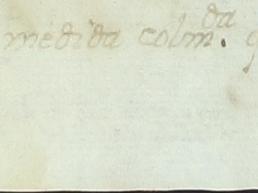 medida colm.da